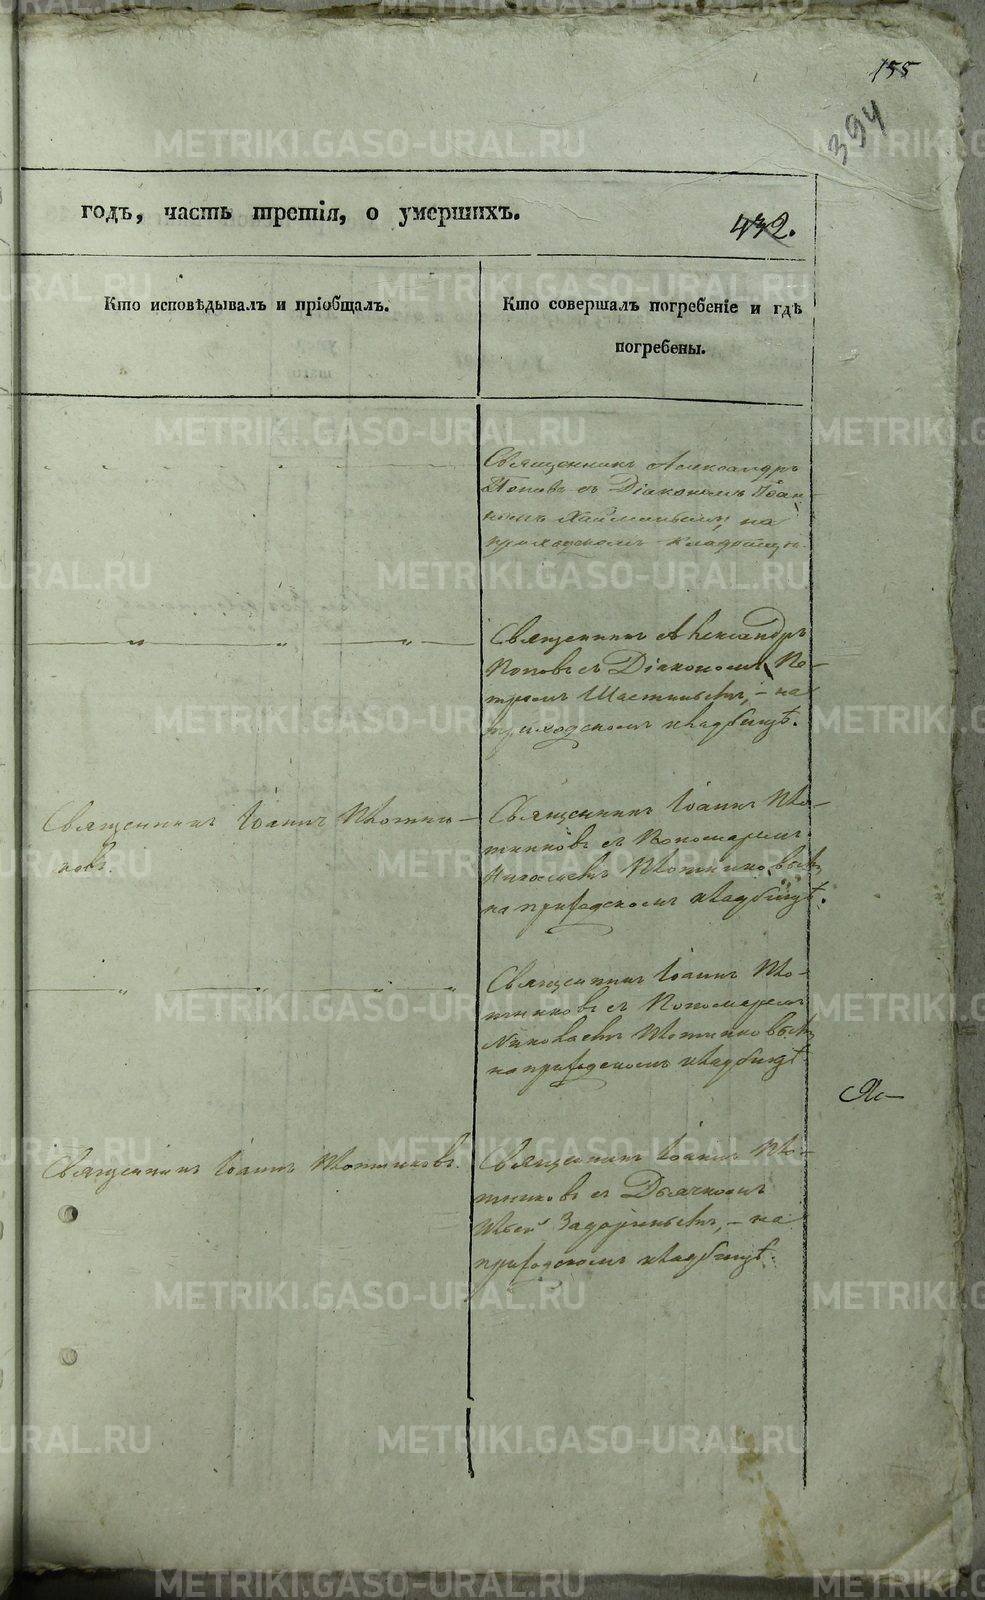 155
394
годъ, часть третія, о умершихъ.
432.
Кто исповѣдывалъ и пріобщалъ.
Кто совершалъ погребеніе и гдѣ
погребены.
Священникъ Александръ
Поповъ съ Діакономъ Іоан-
номъ на
приходскомъ кладбищѣ.
Священникъ Александръ
Поповъ съ Діакономъ Пе-
тромъ на
приходскомъ кладбищѣ.
Священникъ Іоаннъ Плотни-
ковъ.
Священникъ Іоаннъ Пло-
тниковъ съ Пономаремъ
Николаемъ Плотниковымъ,
на приходскомъ кладбищѣ.
Священникъ Іоаннъ Пло-
тниковъ съ Пономаремъ
Николаемъ Плотниковымъ,
на приходскомъ кладбищѣ
Священникъ Іоаннъ Плотниковъ.
Священникъ Іоаннъ Пло-
тниковъ съ Дьячкомъ
на
приходскомъ кладбищѣ.
METRIKI.GASO-URAL.RU